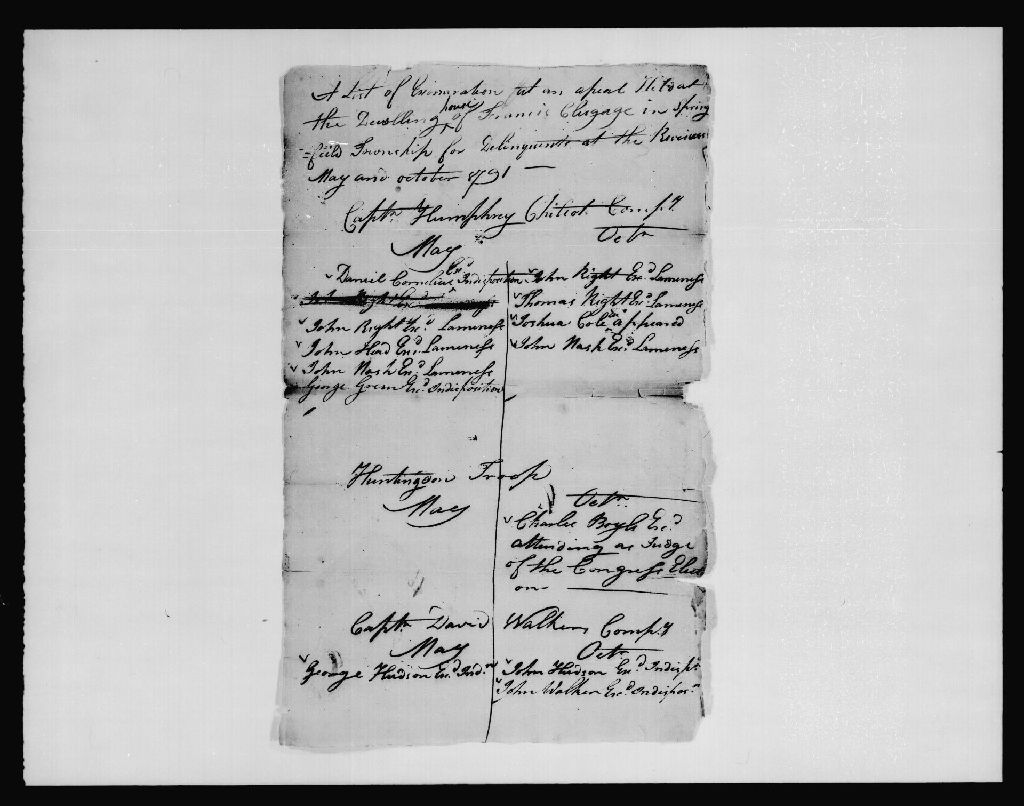 A List of Exoneration at an apeal Held at
the Dwelling house of Francis Clugage in Spring
=field Township for Delinquents at the Reviews
May and october 1791 —
Captn. Humphrey Chilcot Compy.
May
Octr
Daniel Cornelius Exd. Indisposition
John Right Exd Lameness
John Hord Exd Lameness
John Nash Exd Lameness
George Green Exd Indisposition
John Right Exd Lameness
Thomas Right Exd Lameness
Joshua Cole appeared
John Nash Exd Lameness
Huntingdon Troop
May
Octr.
Charles Boyls Exd
attending as Judge
of the Congress Elect
on
Captn. David Walkers Compy
May
Octr
George Hudson Exd Indn
John Hudson Exd Indispn
John Walker Exd Indisposn